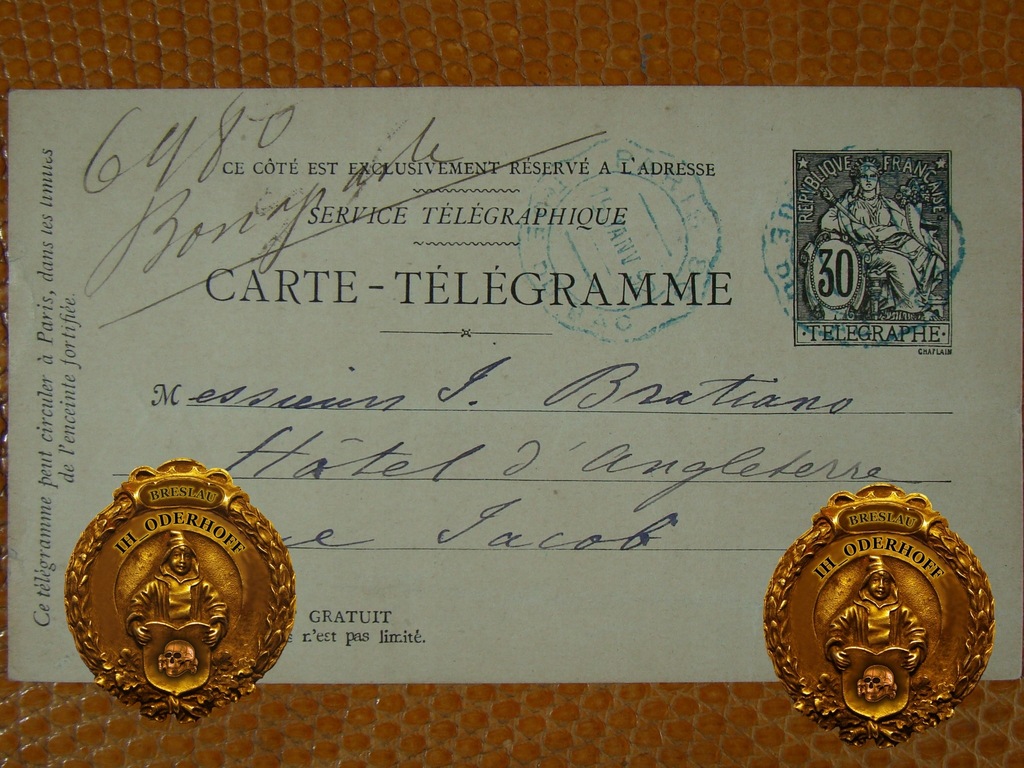 6980
Bonaparte
CE CÔTÉ EST EXCLUSIVEMENT RÉSERVÉ A L'ADRESSE
SERVICE TÉLÉGRAPHIQUE
CARTE-TÉLÉGRAMME
RÉPUBLIQUE FRANÇAISE
30
TELEGRAPHE
CHAPLAIN
PARIS
JANV
BAC
Messieurs J. Bratiano
Hôtel d'Angleterre
ue Jacob
GRATUIT
n'est pas limité.
Ce télégramme peut circuler à Paris, dans les limites
de l'enceinte fortifiée.
BRESLAU
IH_ODERHOFF
BRESLAU
IH_ODERHOFF